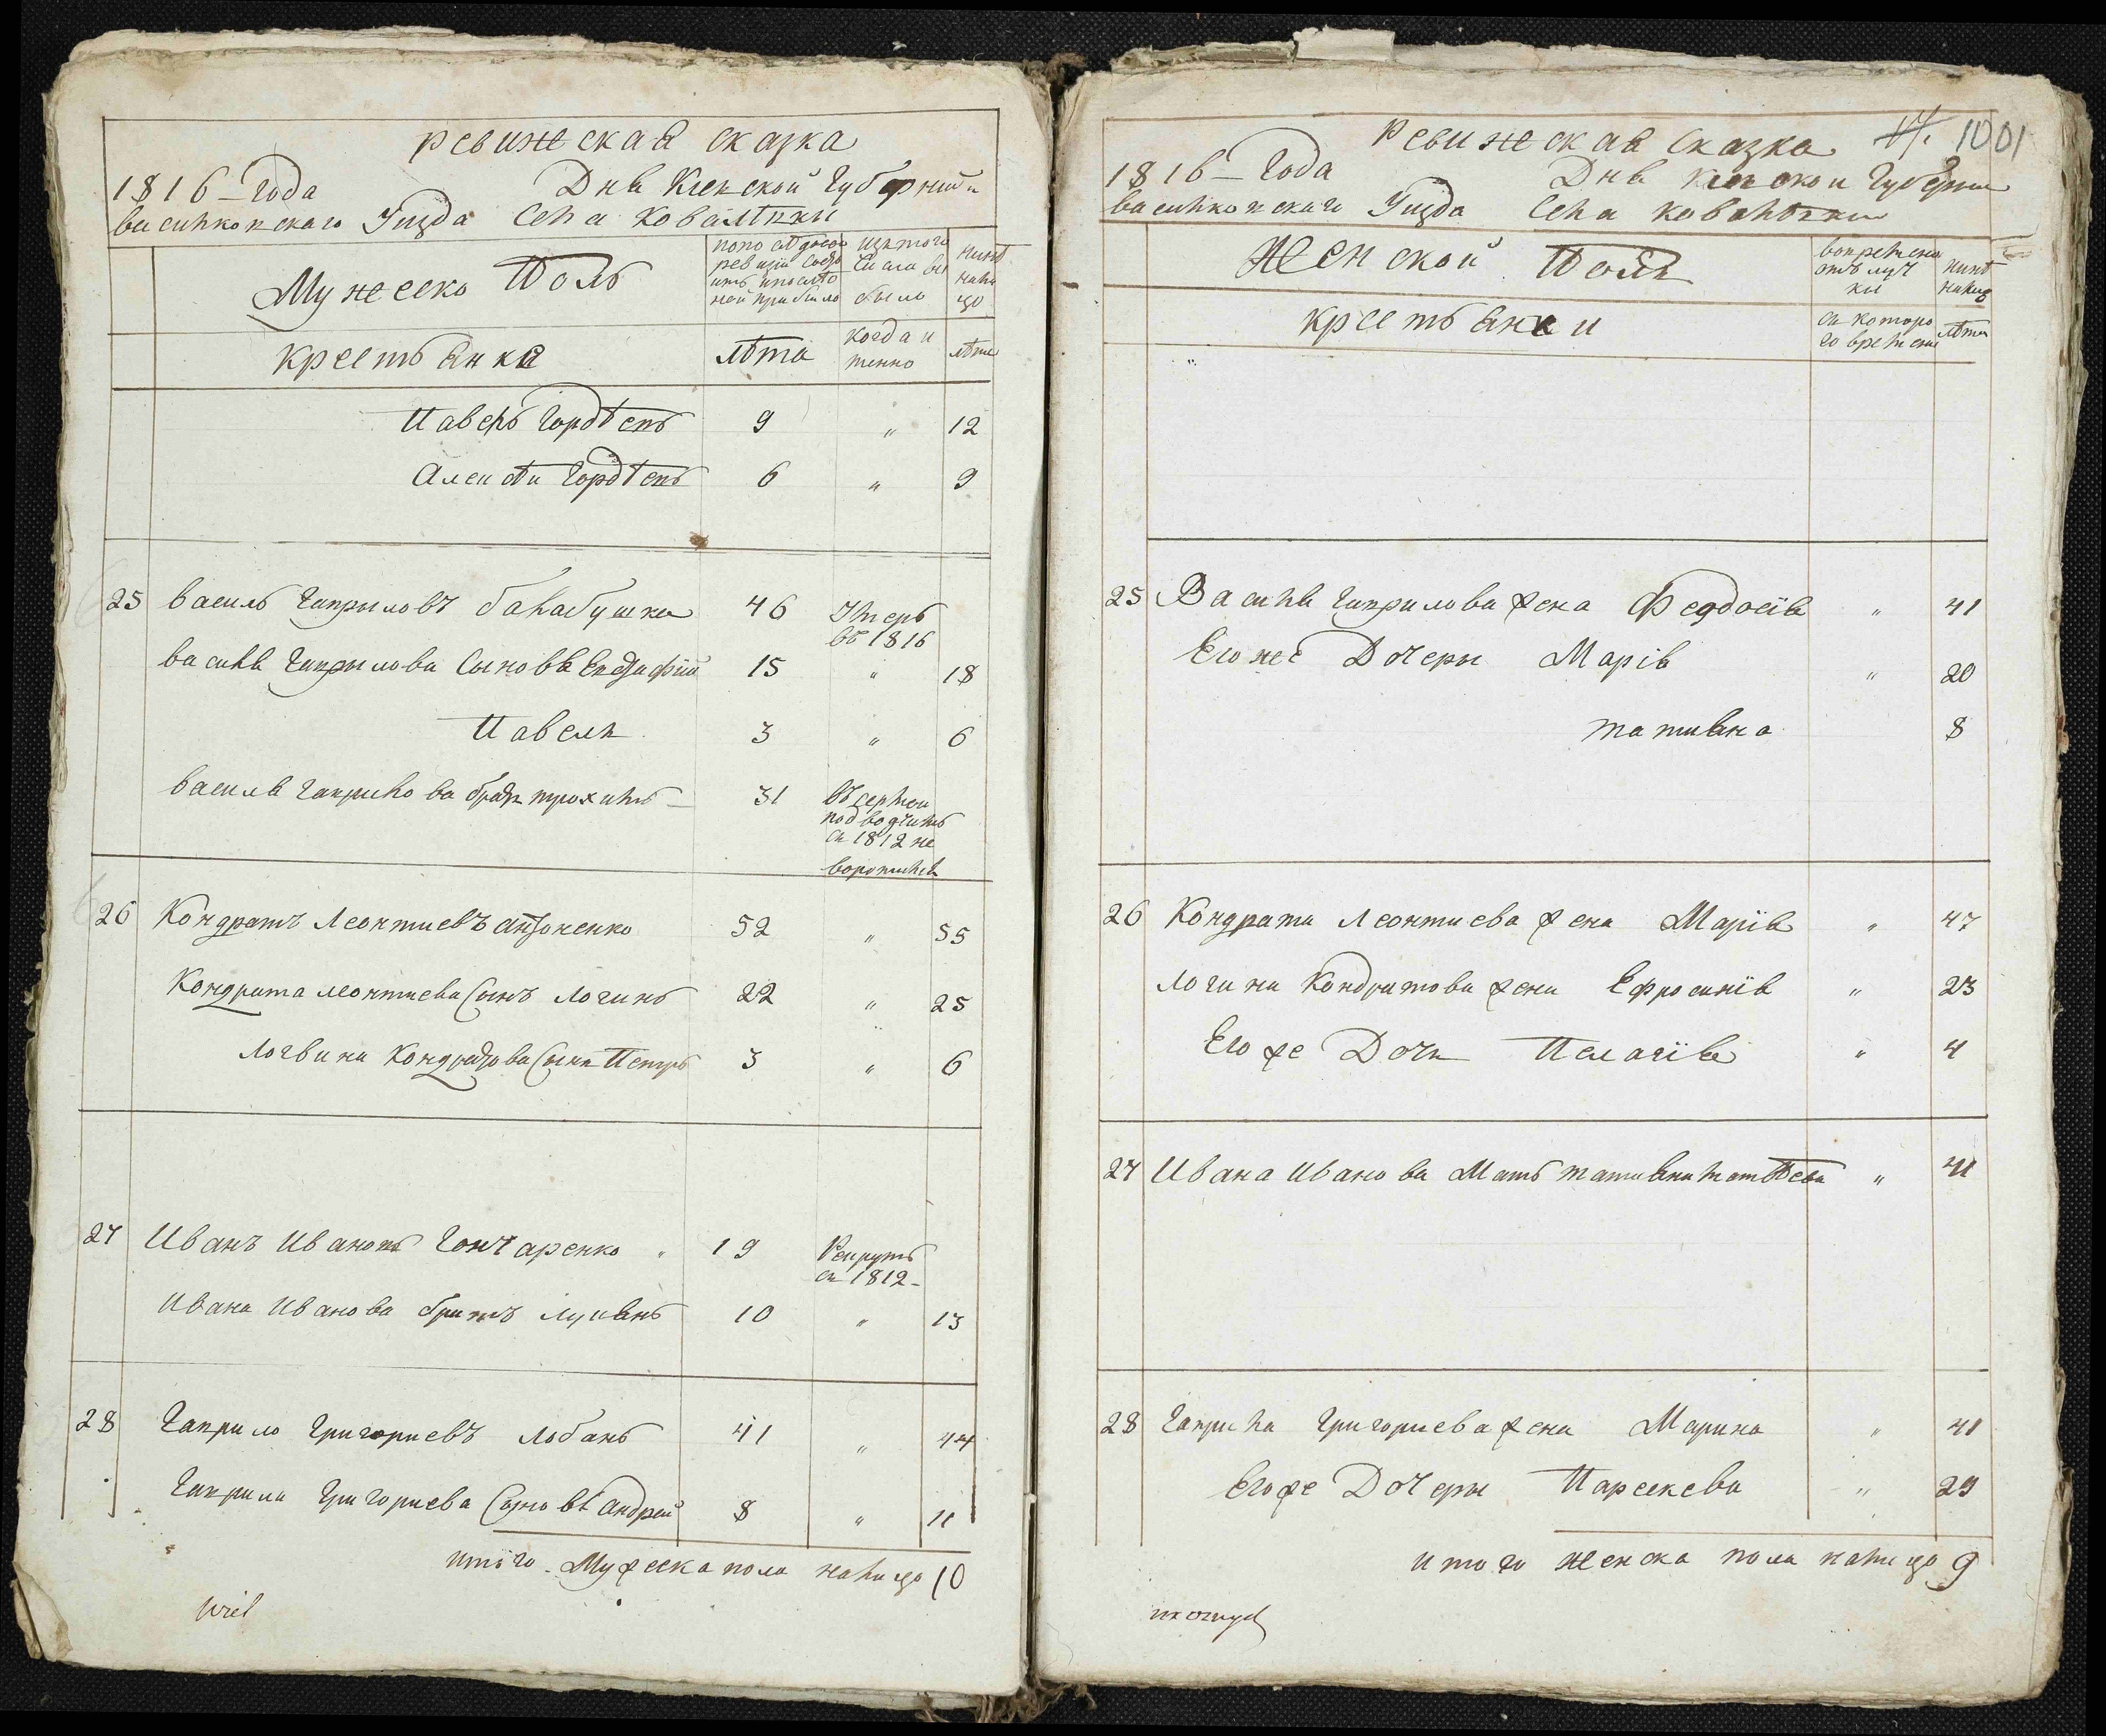 ревижская сказка
1816 года Дня Кіевской Губерніи
василковскаго Уезда Села Ковалѣвки
Мужеско Поль
по последней ревизіи состояло и после ней прибыло
изтого числа выбыло
нинѣ налицо
крестьянѣ
лѣта
когда именно
лѣта
Павелъ Гордѣевъ 9 " 12
Алексѣи Гордѣевъ 6 " 9
25 Василь Гаврыловъ балабушка 46 Умеръ въ 1816
василя Гаврылова сыновя Евстафій 15 " 18
Павелъ 3 " 6
василя гаврилова братъ трохимъ 31 въ сермеи подводчикъ съ 1812 не воротился
26 Кондратъ Леонтиевъ антоненко 52 " 55
Кондрата леонтиева сынъ Логинъ 22 " 25
Логвина Кондратова сынъ Петръ 3 " 6
27 Иванъ Ивановъ Гончаренко " 19 Рекрутъ съ 1812
Ивана Иванова братъ лукянъ 10 " 13
28 Гаврило Григориевъ лобанъ 41 " 44
Гаврила Григориева сыновѣ андрей 8 " 11
итого Мужеска пола налицо 10
Ревижская Сказка 1001
1816 Года Дня Кіевскои Губерни
василковскаго Уезда Села Ковалѣвки
Женской Поль
вовремени отълучки
нинѣ налицо
крестьянки
съ которого времени
лѣта
"
25 Василя гаврилова жена Федосія " 41
Егоже Дочеры Марія " 20
татияна 8
26 Кондрата Леонтиева жена Марія " 47
Логина Кондратова жена Ефросинія " 23
Егоже Дочь Пелагія " 4
27 Ивана Иванова Мать татияна матвѣева " 41
28 Гаврила Григориева жена Марина " 41
Егоже Дочеры Параскева " 29
итого женска пола налицо 9